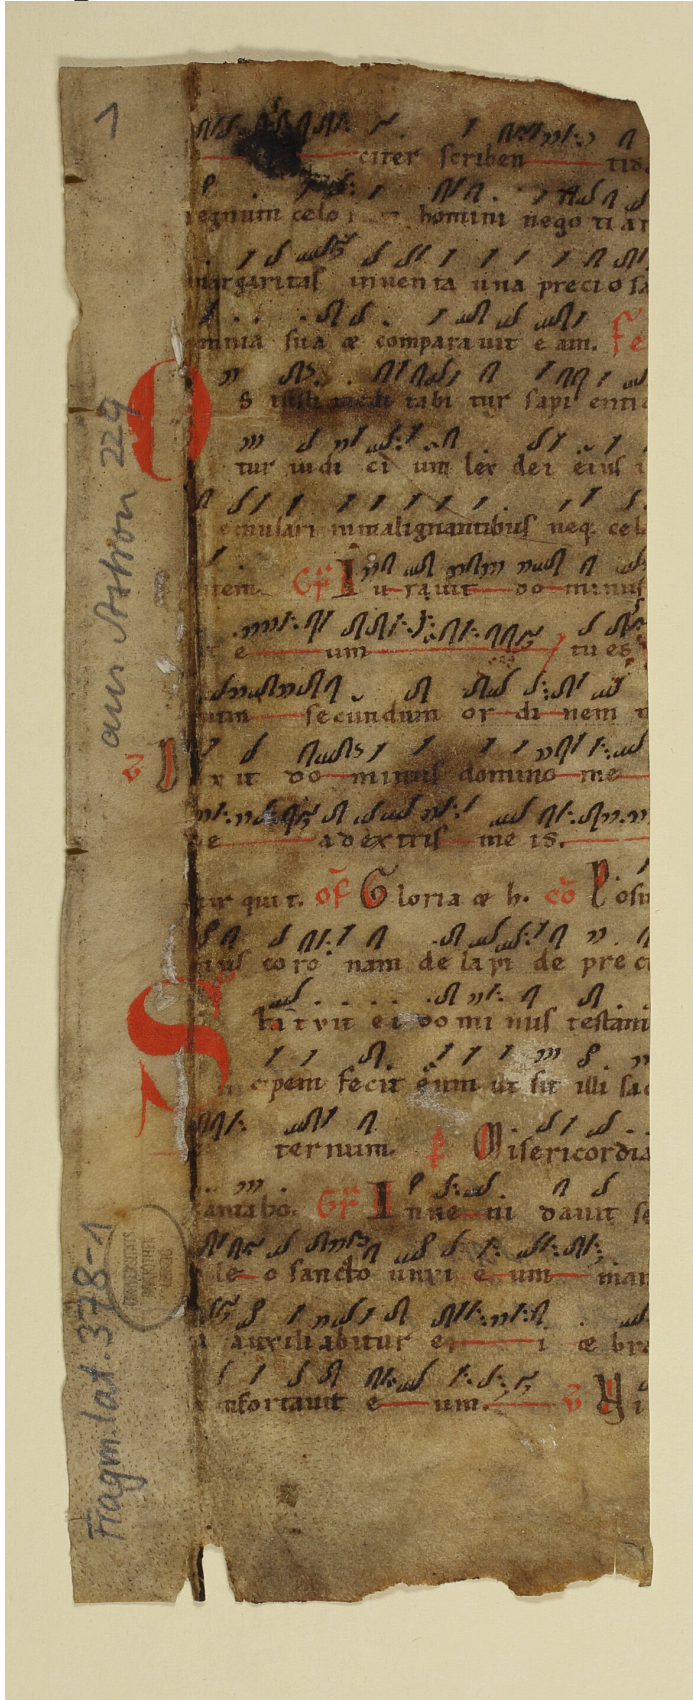 1
citer scriben tis.
regnum celo homini nego ti at
margaritas inventa una precio sa
omnia sua & comparauit eam. Fe
O s iusti medi tabi tur sapi entia
tur iudi ci um lex dei eius i
emulari inmalignantibus neq cel
tem. GR I u rauit do minus
e um tu es
num secundum or di nem m
V D ixit do minus domino me
de a dextris me is.
tur qui t. OF G loria & h. CO P osu
eius coro nam de lapi de preci
S ta t vit ei do mi nus testam
cipem fecit eum ut sit illi sac
ternum. P M isericordia
cantabo. GR I nue ni dauit se
le o sancto unxi e um man
a auxiliabitur e i & bra
nfortauit e um. V N i
aus Astron 229
Fragm. lat. 378-1